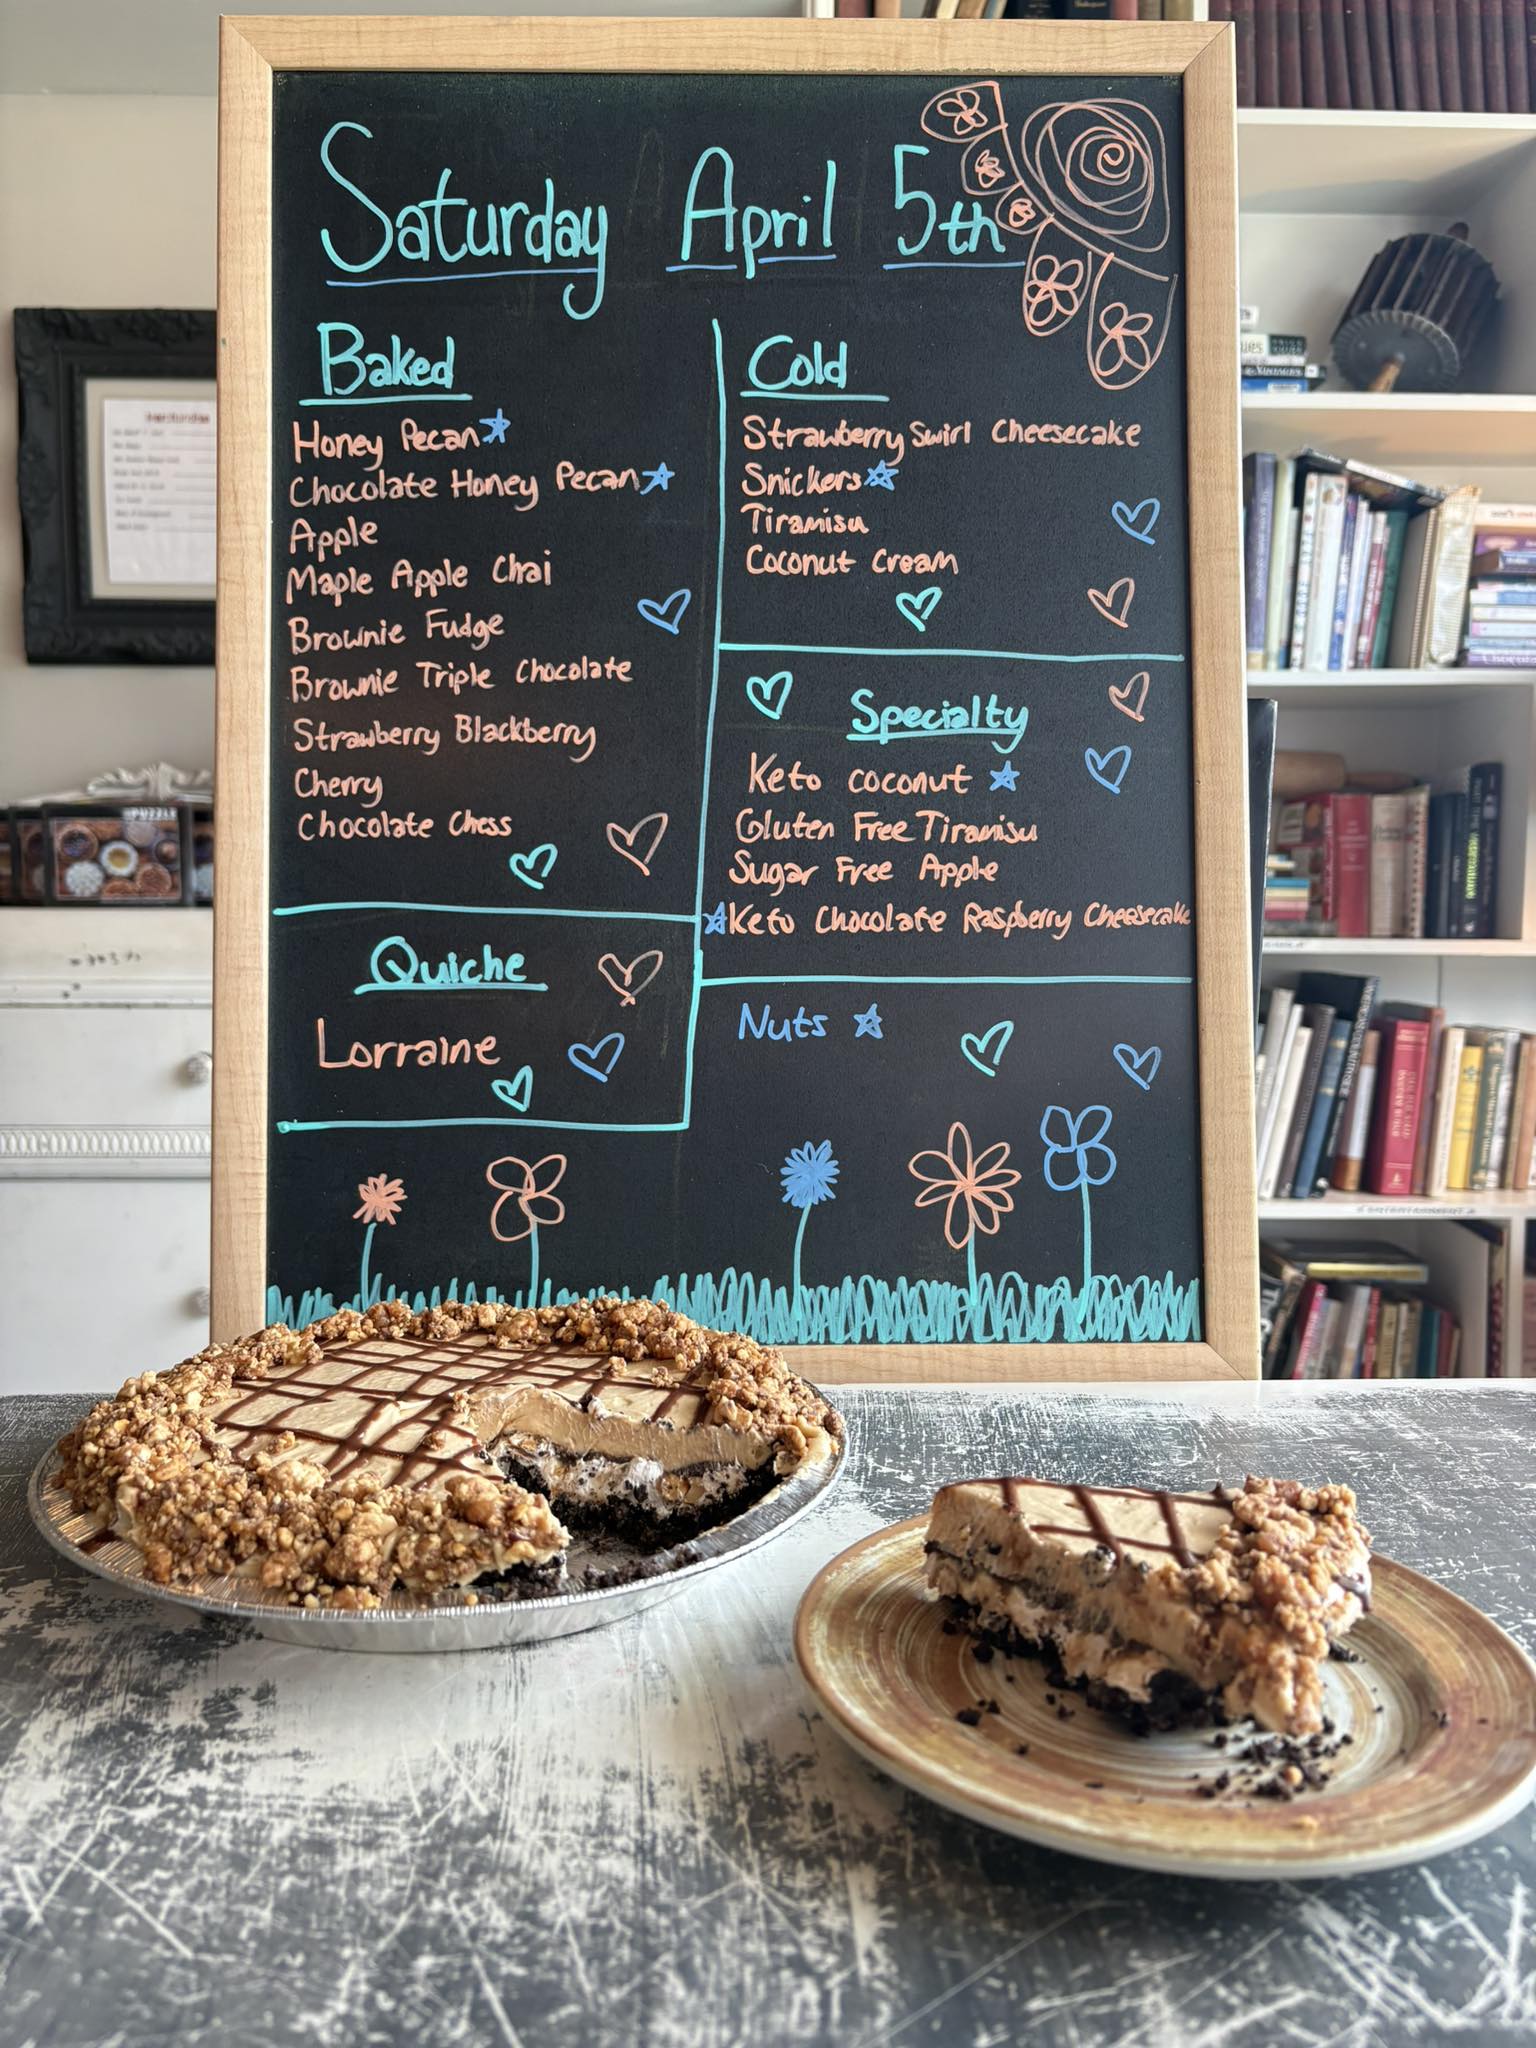 Saturday April 5th
Baked
Honey Pecan
Chocolate Honey Pecan
Apple
Maple Apple Chai
Brownie Fudge
Brownie Triple Chocolate
Strawberry Blackberry
Cherry
Chocolate Chess
Quiche
Lorraine
Cold
Strawberry Swirl Cheesecake
Snickers
Tiramisu
Coconut Cream
Specialty
Keto coconut
Gluten Free Tiramisu
Sugar Free Apple
Keto Chocolate Raspberry Cheesecake
Nuts
PUZZLE